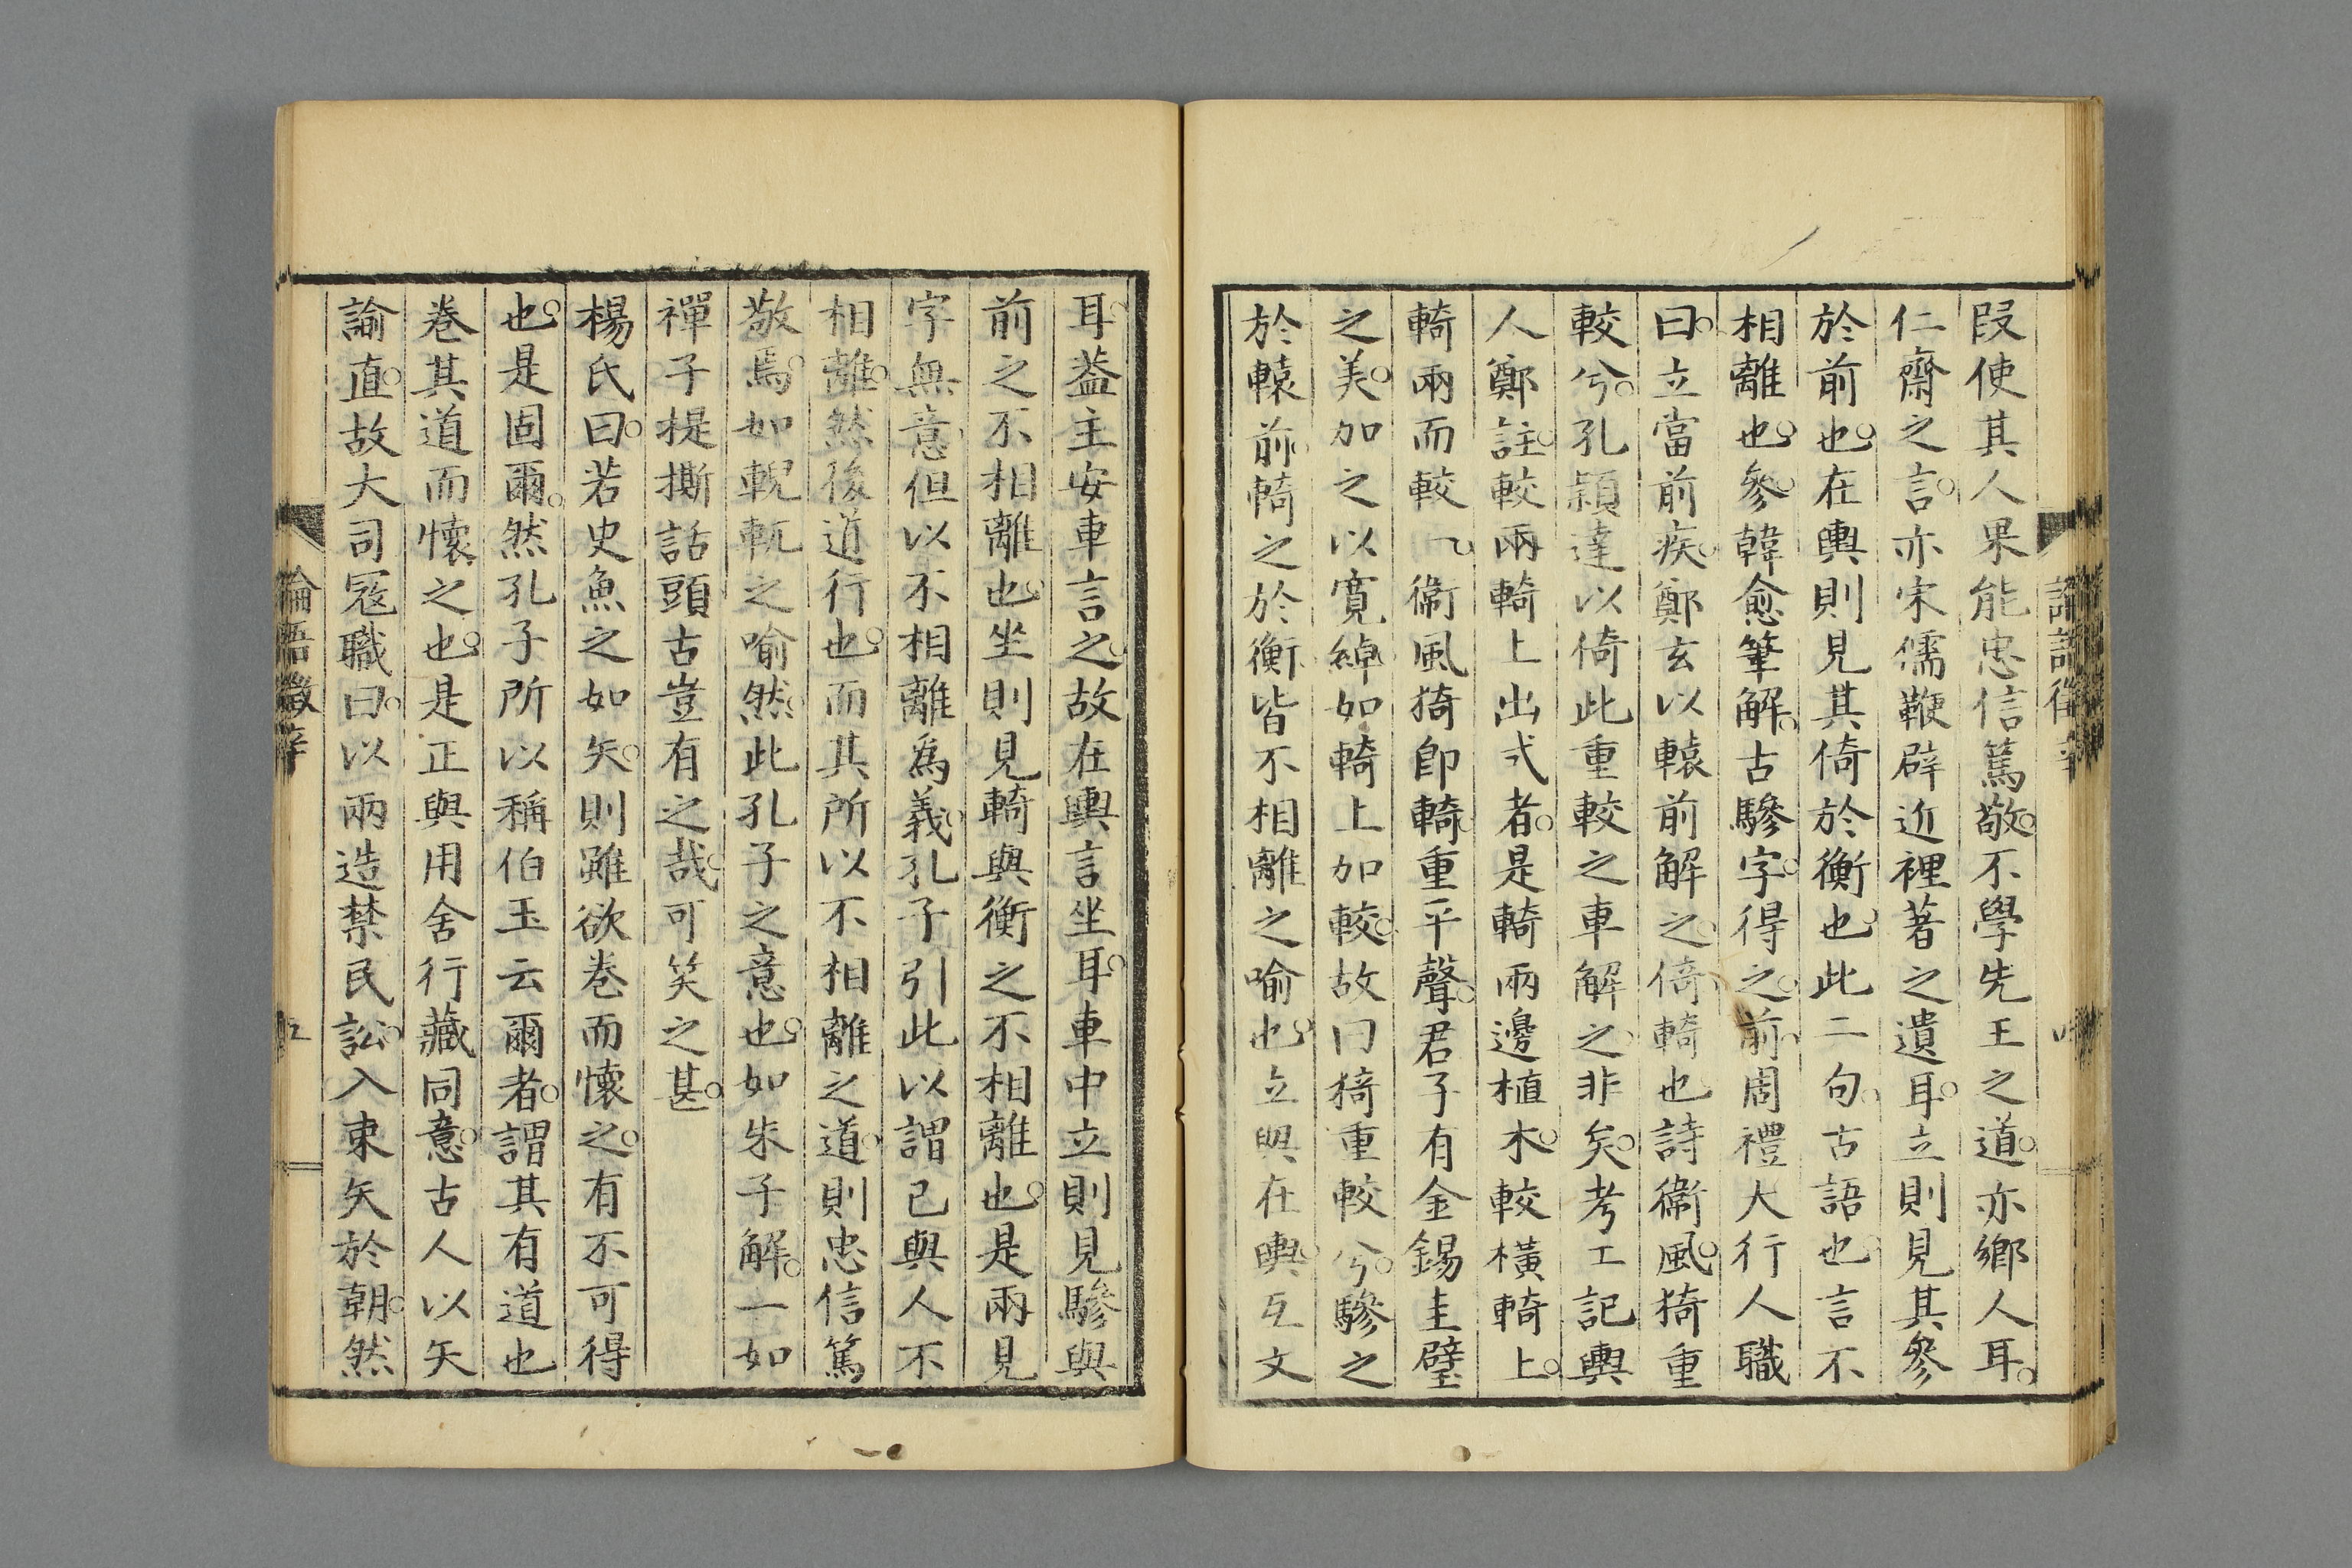 論語徵
段使其人果能忠信篤敬不學先王之道亦鄉人耳
仁齋之言亦宋儒鞭辟近裡著之遺耳立則見其參
於前也在輿則見其倚於衡也此二句古語也言不
相離也參韓愈筆解古驂字得之前周禮大行人職
曰立當前疾鄭玄以轅前解之倚輢也詩衞風猗重
較兮孔穎達以倚此重較之車解之非矣考工記輿
人鄭註較兩輢上出式者是輢兩邊植木較橫輢上
輢兩而較一衞風猗卽輢重平聲君子有金錫圭璧
之美加之以寬綽如輢上加較故曰猗重較兮驂之
於轅前輢之於衡皆不相離之喻也立與在輿互文
耳蓋主安車言之故在輿言坐耳車中立則見驂與
前之不相離也坐則見輢與衡之不相離也是兩見
字無意但以不相離爲義孔子引此以謂己與人不
相離然後道行也而其所以不相離之道則忠信篤
敬焉如輗軏之喻然此孔子之意也如朱子解一如
禪子提撕話頭古豈有之哉可笑之甚
楊氏曰若史魚之如矢則雖欲卷而懷之有不可得
也是固爾然孔子所以稱伯玉云爾者謂其有道也
卷其道而懷之也是正與用舍行藏同意古人以矢
諭直故大司冦職曰以兩造禁民訟入束矢於朝然
論語徵辛
五